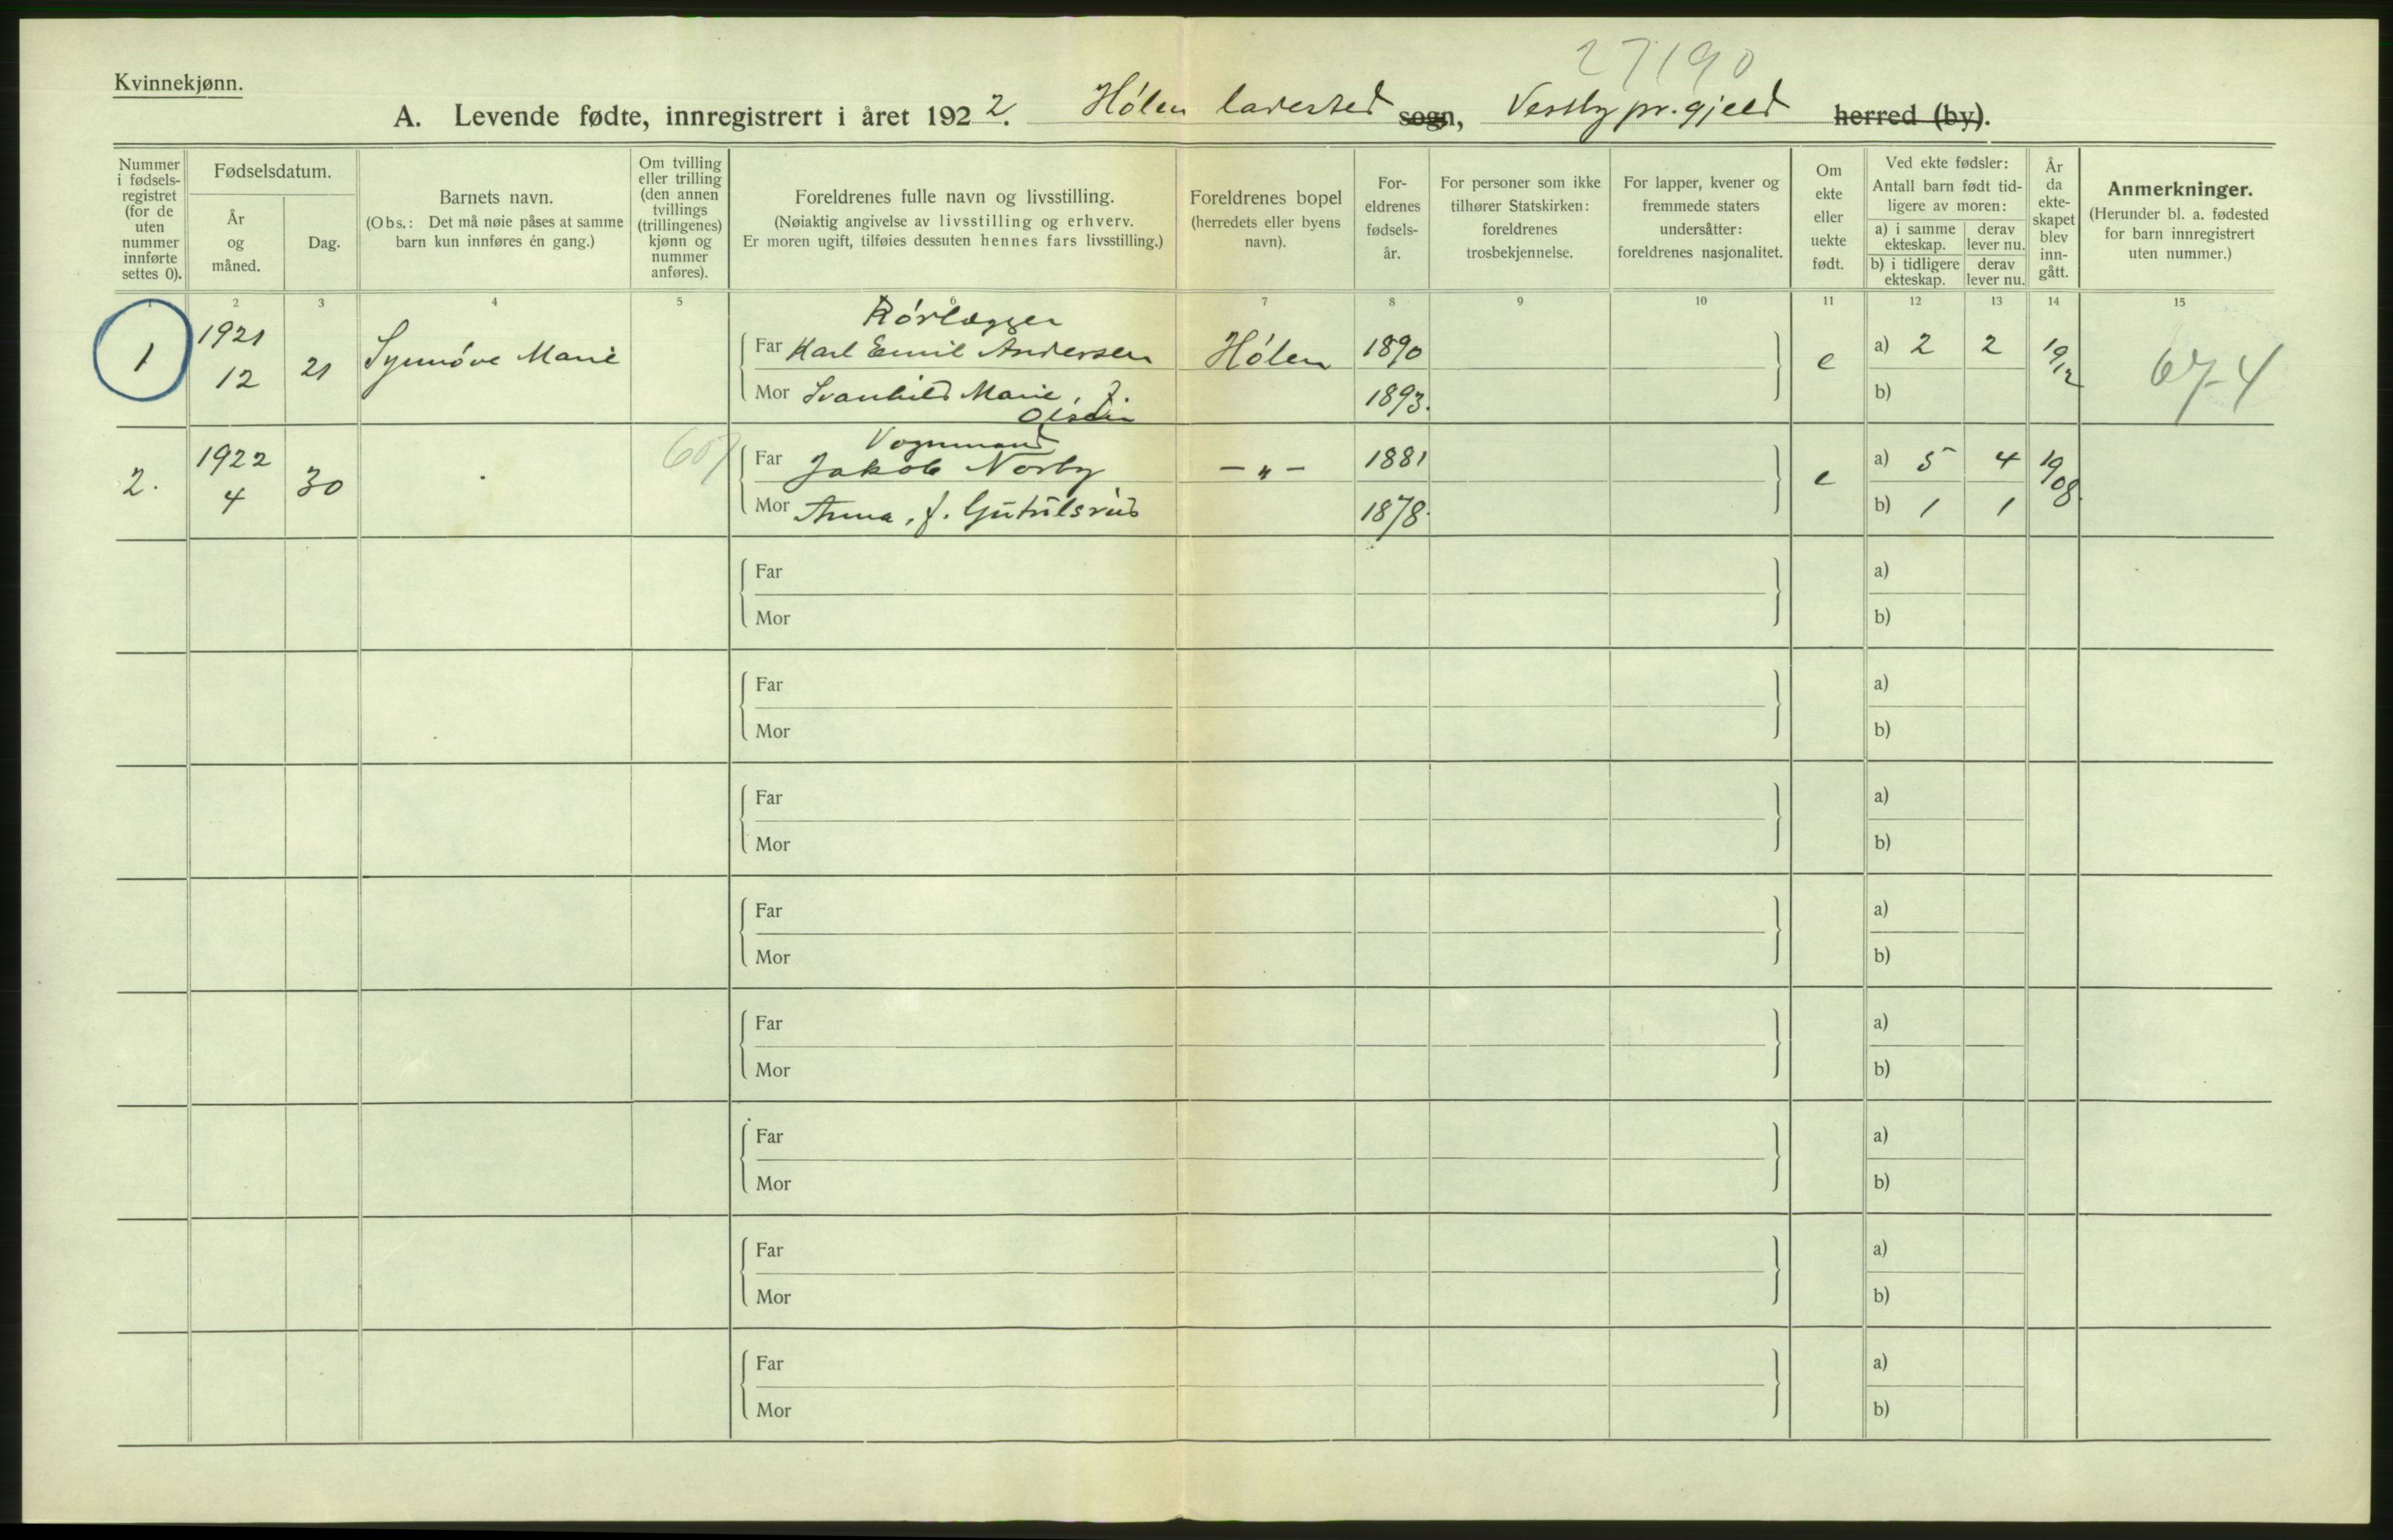 27190
Kvinnekjønn.
A. Levende fødte, innregistrert i året 1922. Hølen ladested sogn, Vestby pr.gjeld herred (by).
Nummer i fødsels-registret (for de uten nummer innførte settes 0).
Fødselsdatum.
År og måned.
Dag.
Barnets navn.
(Obs.: Det må nøie påses at samme barn kun innføres én gang.)
Om tvilling eller trilling (den annen tvillings (trillingenes) kjønn og nummer anføres).
Foreldrenes fulle navn og livsstilling.
(Nøiaktig angivelse av livsstilling og erhverv.
Er moren ugift, tilføies dessuten hennes fars livsstilling.)
Foreldrenes bopel
(herredets eller byens navn).
For-eldrenes fødsels-år.
For personer som ikke tilhører Statskirken: foreldrenes trosbekjennelse.
For lapper, kvener og fremmede staters undersåtter: foreldrenes nasjonalitet.
Om ekte eller uekte født.
Ved ekte fødsler:
Antall barn født tid-ligere av moren:
a) i samme ekteskap.
derav lever nu.
b) i tidligere ekteskap.
derav lever nu.
År da ekte-skapet blev inn-gått.
Anmerkninger.
(Herunder bl. a. fødested for barn innregistrert uten nummer.)
1 2 3 4 5 6 7 8 9 10 11 12 13 14 15
Rørlægger
1 1921 12 21 Synnøve Marie
Far Karl Emil Andersen Hølen 1890 e a) 2 2 19/12 67-4
Mor Svanhild Marie, f. Olsen 1893. b)
Vognmand
2. 1922 4 30 607
Far Jakob Norby —„— 1881 e a) 5 4 19/08.
Mor Anna, f. Gutulsrud 1878. b) 1 1
Far a)
Mor b)
Far a)
Mor b)
Far a)
Mor b)
Far a)
Mor b)
Far a)
Mor b)
Far a)
Mor b)
Far a)
Mor b)
Far a)
Mor b)